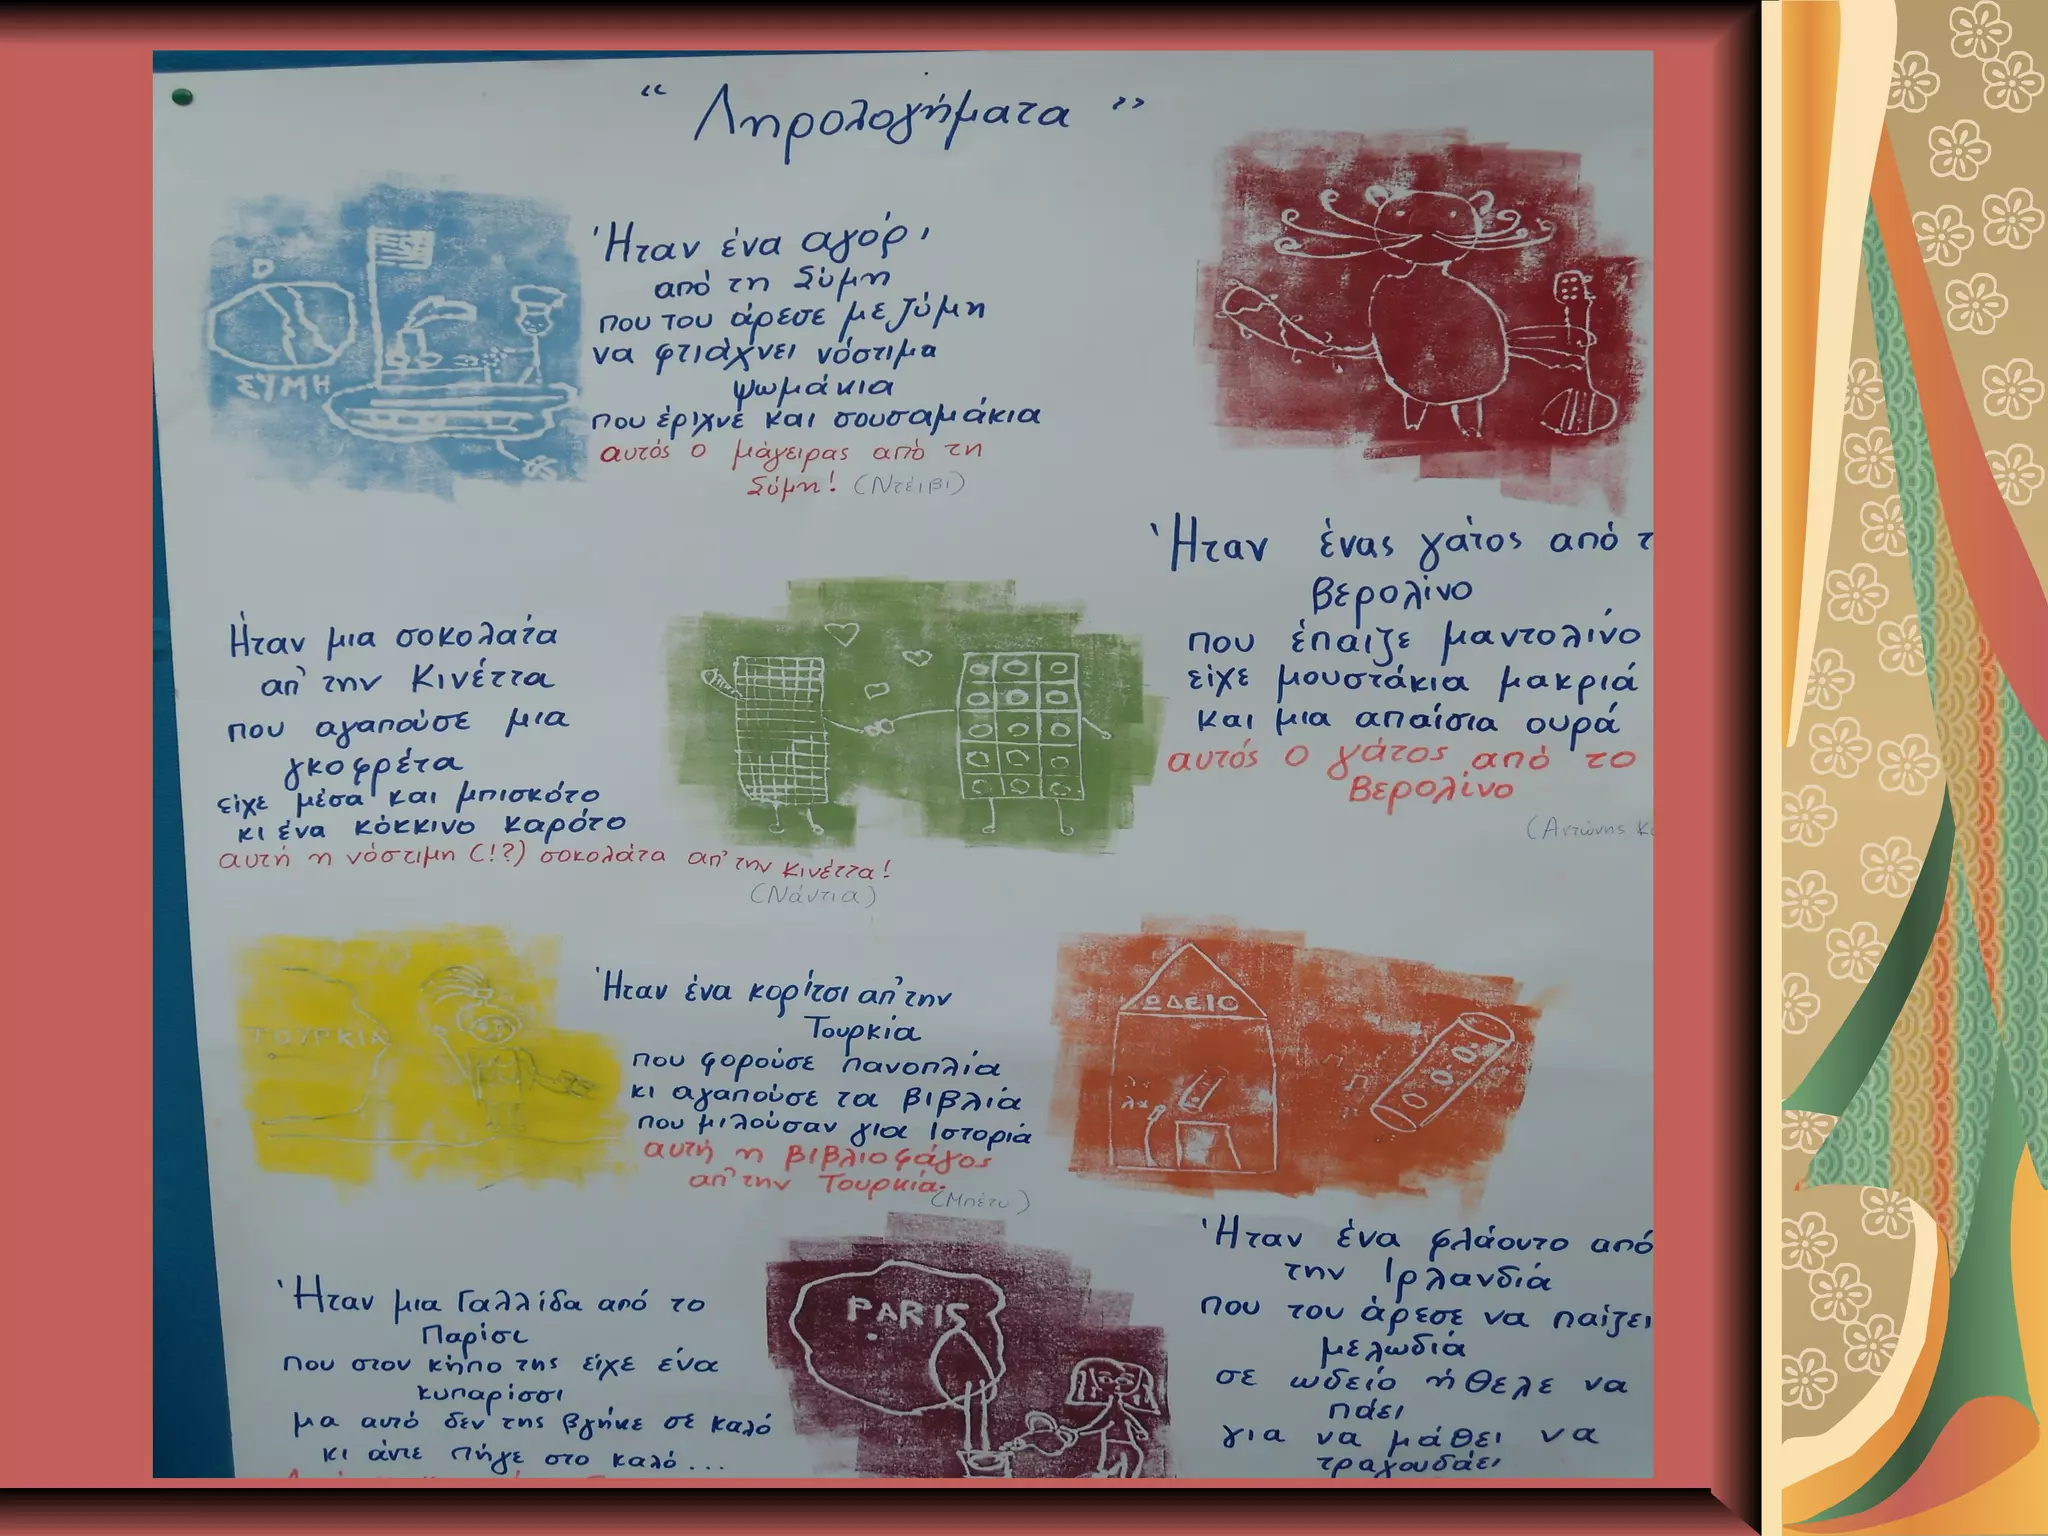 “ Ληρολογήματα ”
Ήταν ένα αγόρι
από τη Σύμη
που του άρεσε με ζύμη
να φτιάχνει νόστιμα
ψωμάκια
που έριχνε και σουσαμάκια
αυτός ο μάγειρας από τη
Σύμη! (Ντέιβι)
ΣΥΜΗ
Ήταν ένας γάτος από τ
Βερολίνο
που έπαιζε μαντολίνο
είχε μουστάκια μακριά
και μια απαίσια ουρά
αυτός ο γάτος από το
Βερολίνο
(Αντώνης Κ
Ήταν μια σοκολάτα
απ' την Κινέττα
που αγαπούσε μια
γκοφρέτα
είχε μέσα και μπισκότο
κι ένα κόκκινο καρότο
αυτή η νόστιμη (!?) σοκολάτα απ' την Κινέττα!
(Νάντια)
ΤΟΥΡΚΙΑ
Ήταν ένα κορίτσι απ' την
Τουρκία
που φορούσε πανοπλία
κι αγαπούσε τα βιβλία
που μιλούσαν για Ιστορία
αυτή η βιβλιοφάγος
απ' την Τουρκία.
(Μπέτυ)
ΩΔΕΙΟ
Ήταν ένα φλάουτο από
την Ιρλανδία
που του άρεσε να παίζει
μελωδία
σε ωδείο ήθελε να
πάει
για να μάθει να
τραγουδάει
Ήταν μια Γαλλίδα από το
Παρίσι
που στον κήπο της είχε ένα
κυπαρίσσι
μα αυτό δεν της βγήκε σε καλό
κι άντε πήγε στο καλό...
PARIS